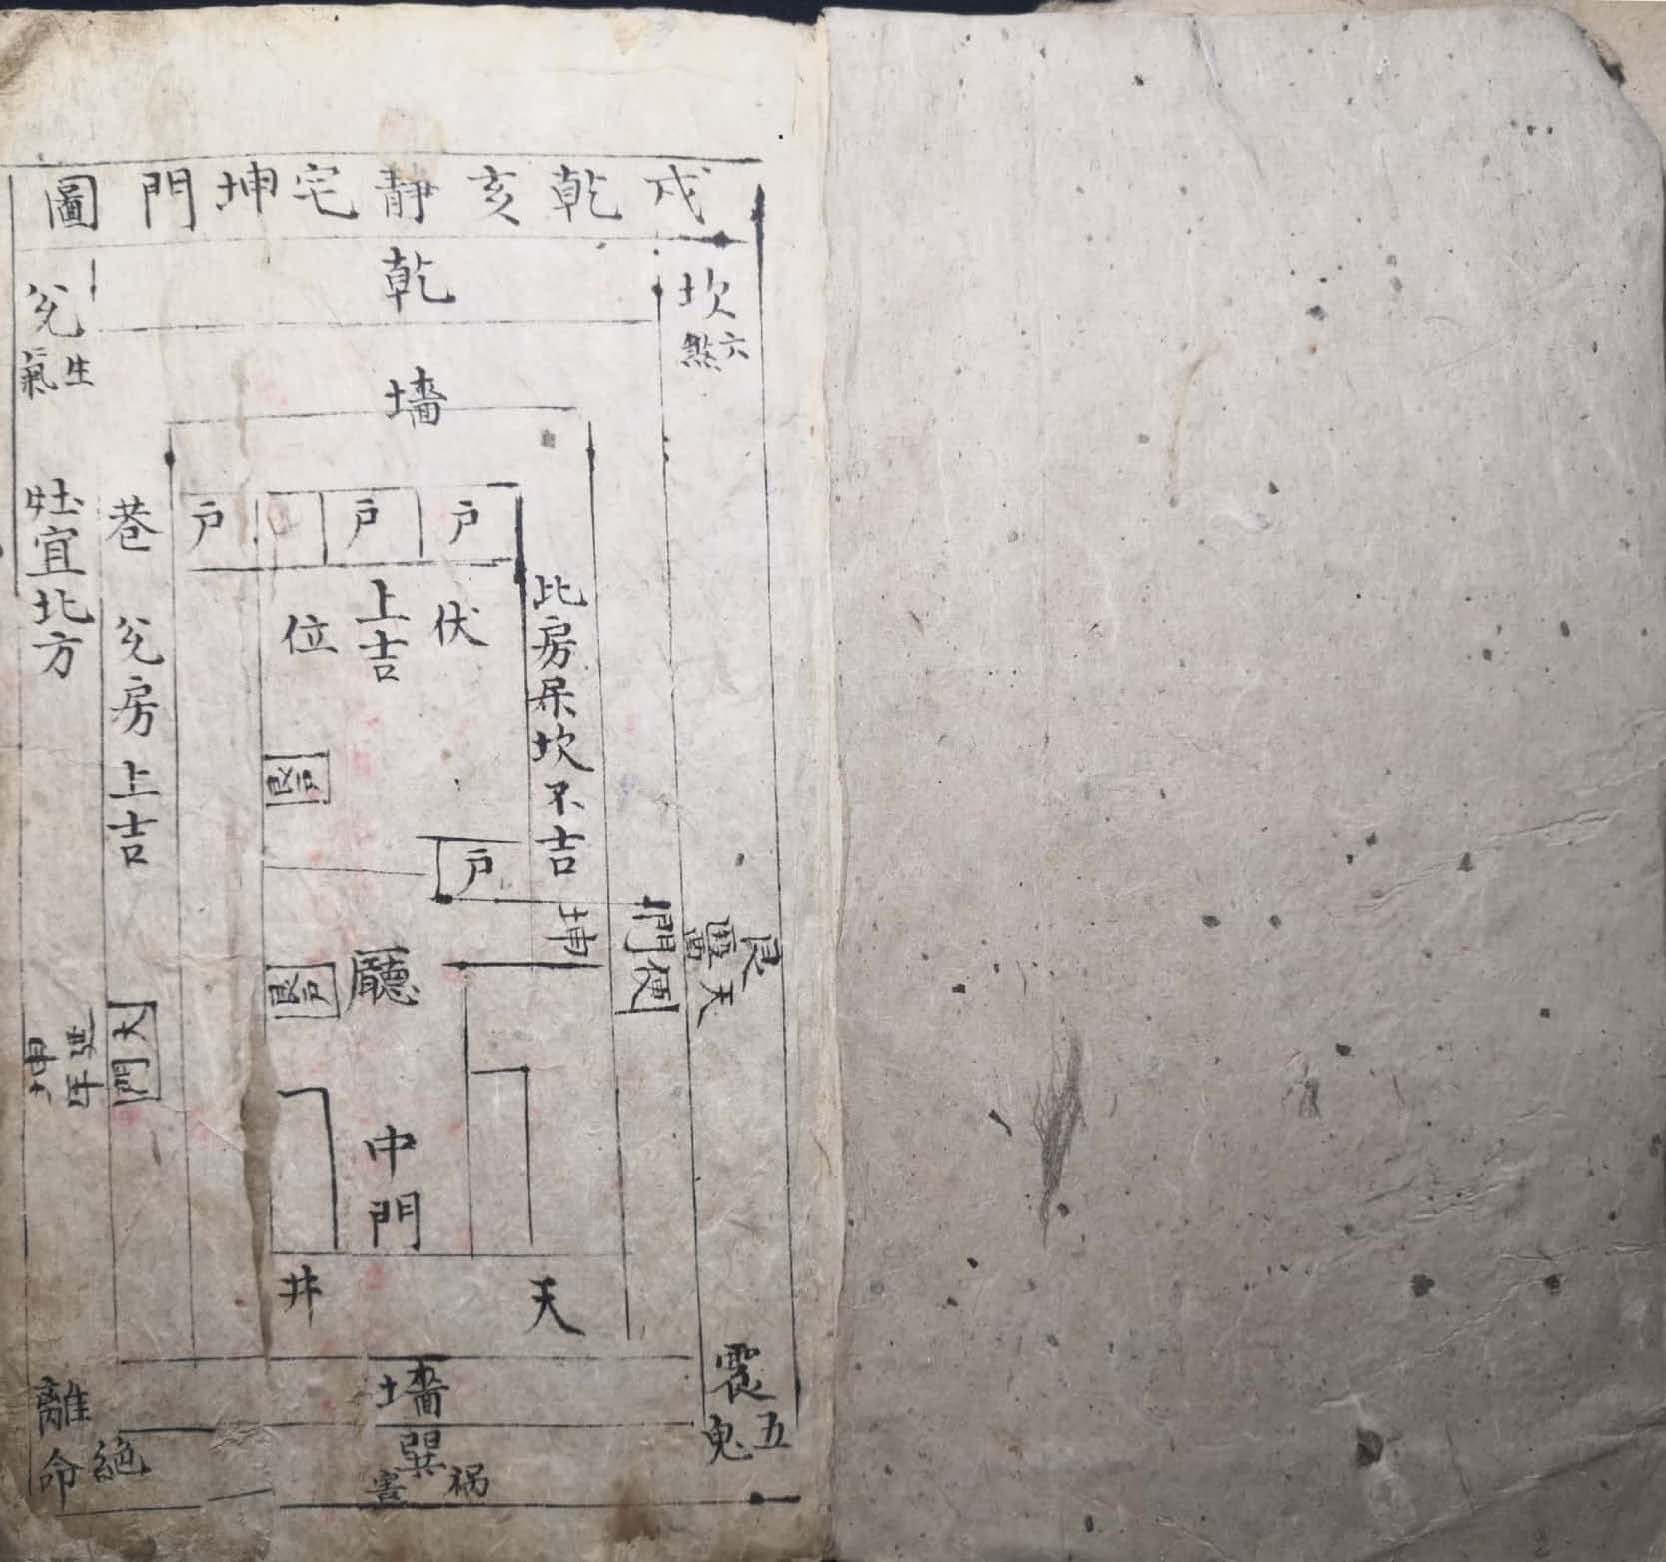 戍乾亥靜宅坤門圖
乾
坎
六煞
兊
生氣
墻
巷
戶
戶
戶
灶宜北方
兊房上吉
伏
上吉
位
此房屎坎不吉
戶
戶
廳
便門
艮
天
大門
坤
延年
中門
天
井
墻
震
五鬼
離
絕命
巽
禍害